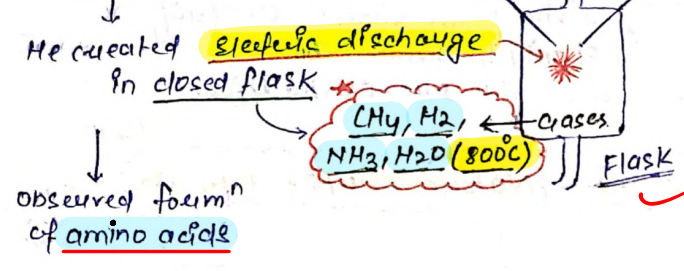 He created electric discharge
in closed flask
CH4, H2,
NH3, H2O (800°C)
Gases
Flask
Observed formⁿ
of amino acids